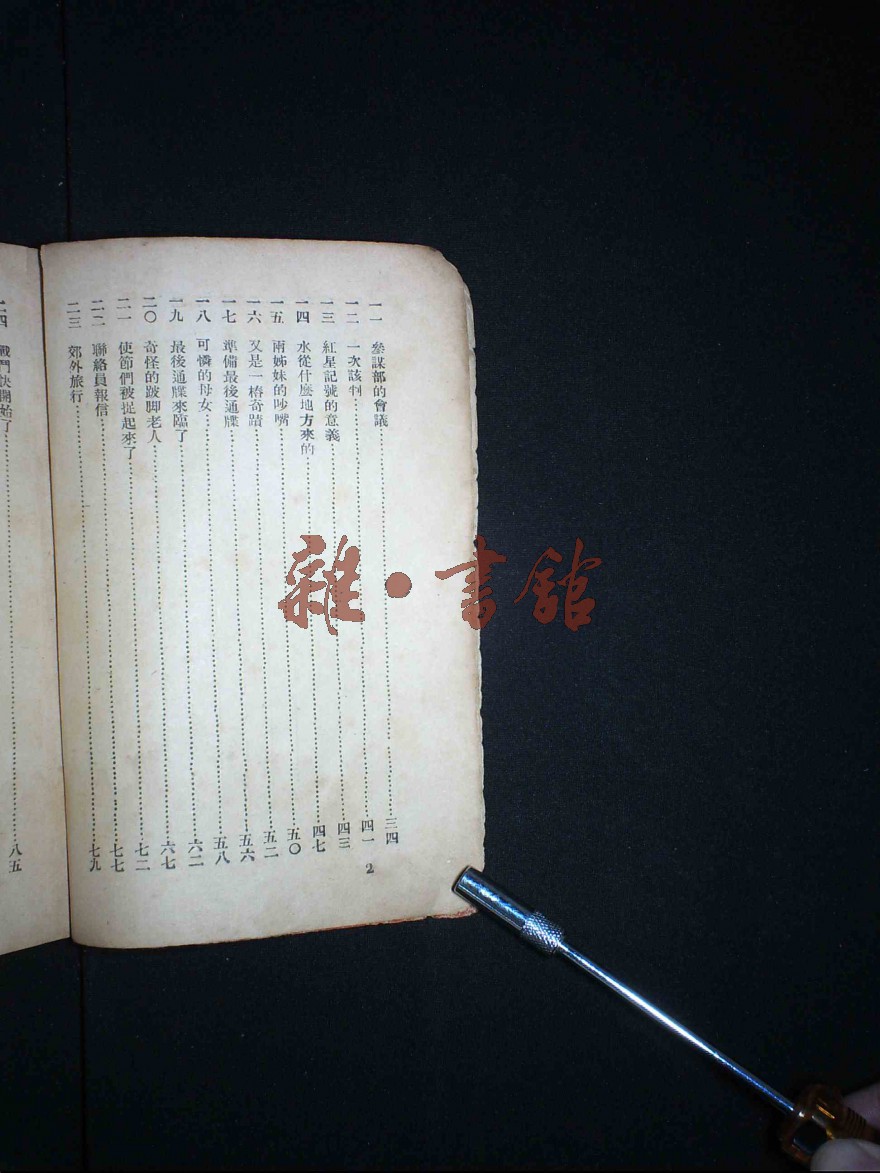 一一 參謀部的會議 三四
一二 一次談判 四一
一三 紅星記號的意義 四三
一四 水從什麼地方來的 四七
一五 兩姊妹的吵嘴 五〇
一六 又是一樁奇蹟 五二
一七 準備最後通牒 五六
一八 可憐的母女 五八
一九 最後通牒來臨了 六二
二〇 奇怪的跛脚老人 六七
二一 使節們被捉起來了 七二
二二 聯絡員報信 七七
二三 郊外旅行 七九
2
二四 戰鬥快開始了 八五
雜·書館